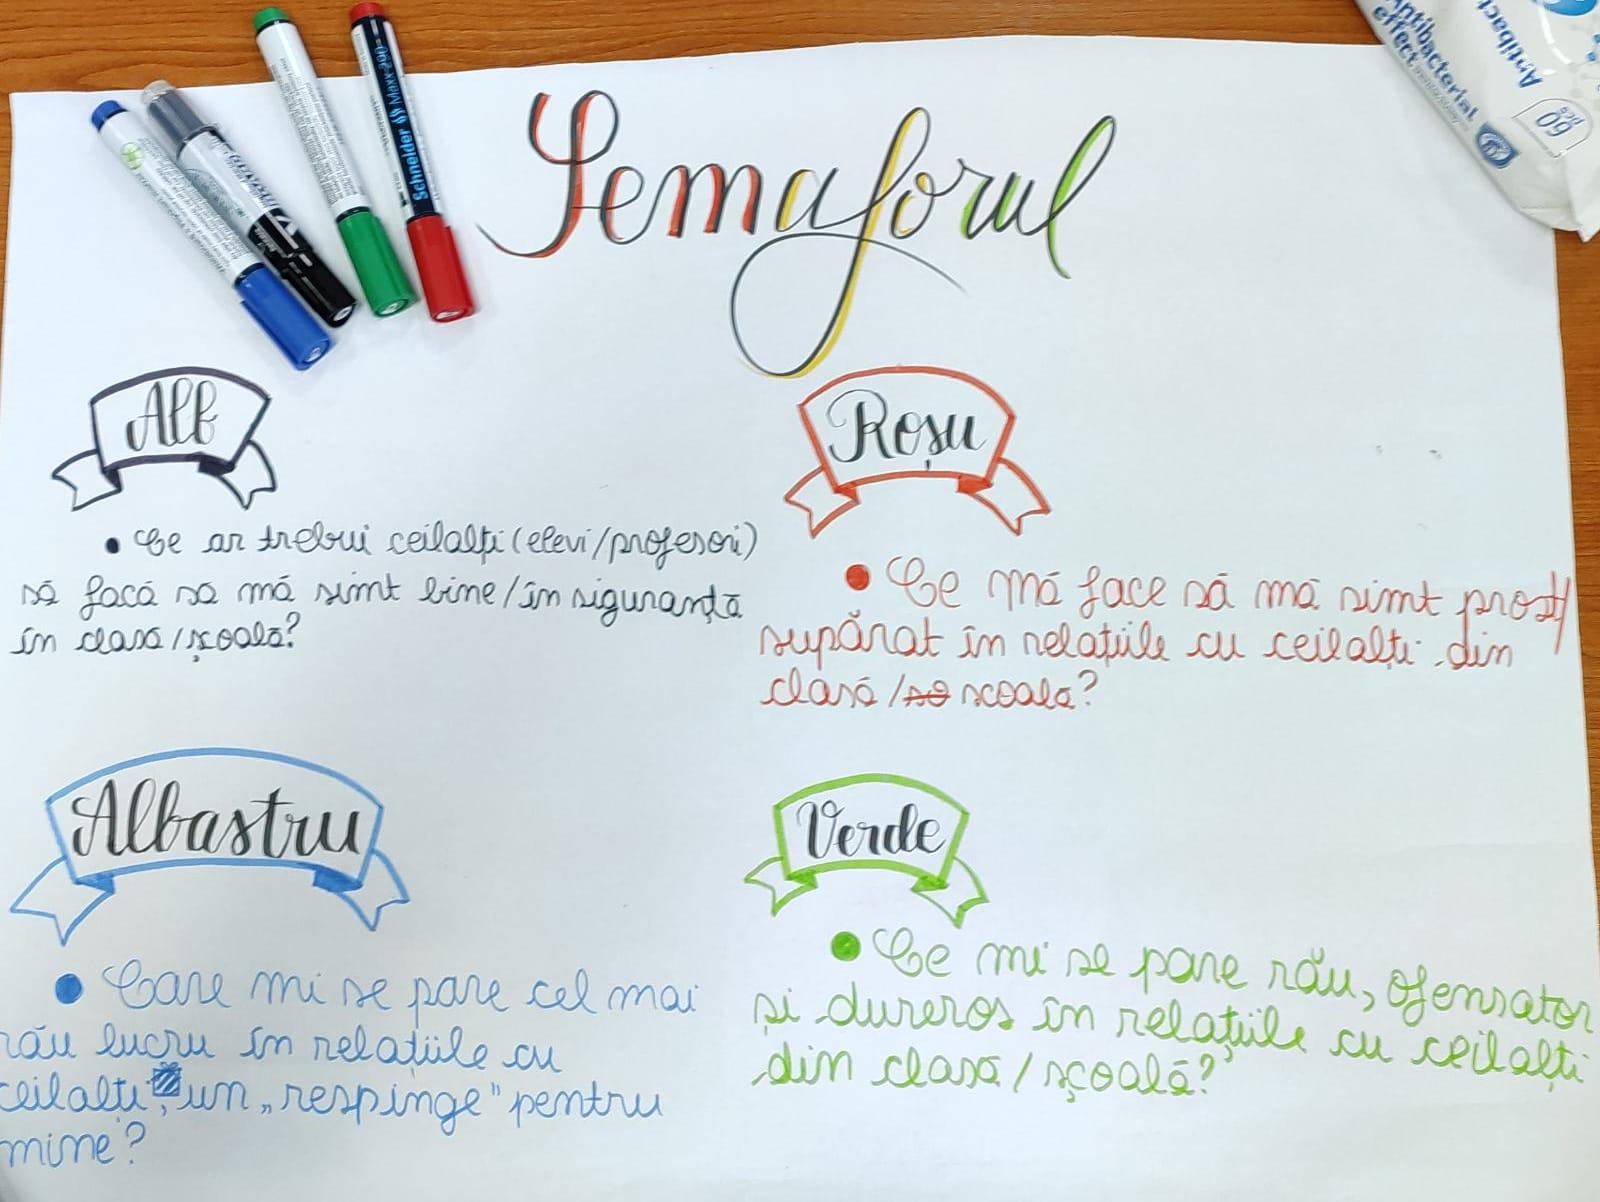 Semaforul
Schneider Maxx 290
Antibact
Antibacterial
effect
60
pcs
Alb
• Ce ar trebui ceilalți (elevi/profesori)
să facă să mă simt bine/în siguranță
în clasă/școală?
Roșu
• Ce mă face să mă simt prost/
supărat în relațiile cu ceilalți din
clasă/so scoală?
Albastru
• Care mi se pare cel mai
rău lucru în relațiile cu
ceilalți, un „respinge" pentru
mine?
Verde
• Ce mi se pare rău, ofensator
și dureros în relațiile cu ceilalți
din clasă/școală?